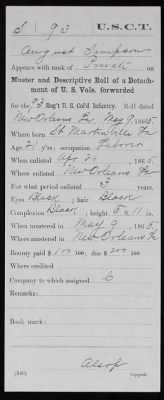 S 93 U.S.C.T.
August Simpson
Appears with rank of Private on
Muster and Descriptive Roll of a Detach-
ment of U. S. Vols. forwarded
for the 93 Reg't U. S. Col'd Infantry. Roll dated
New Orleans La. May 9, 1865.
Where born St Martinville La
Age 21 y'rs; occupation Laborer
When enlisted Apr 26, 1865.
Where enlisted New Orleans La
For what period enlisted 3 years.
Eyes Black; hair Black
Complexion Black; height 5 ft. 11 in.
When mustered in May 9, 1865.
Where mustered in New Orleans La
Bounty paid $ 100; due $ 100
Where credited
Company to which assigned
Remarks:
Book mark:
Alsop
Copyist.